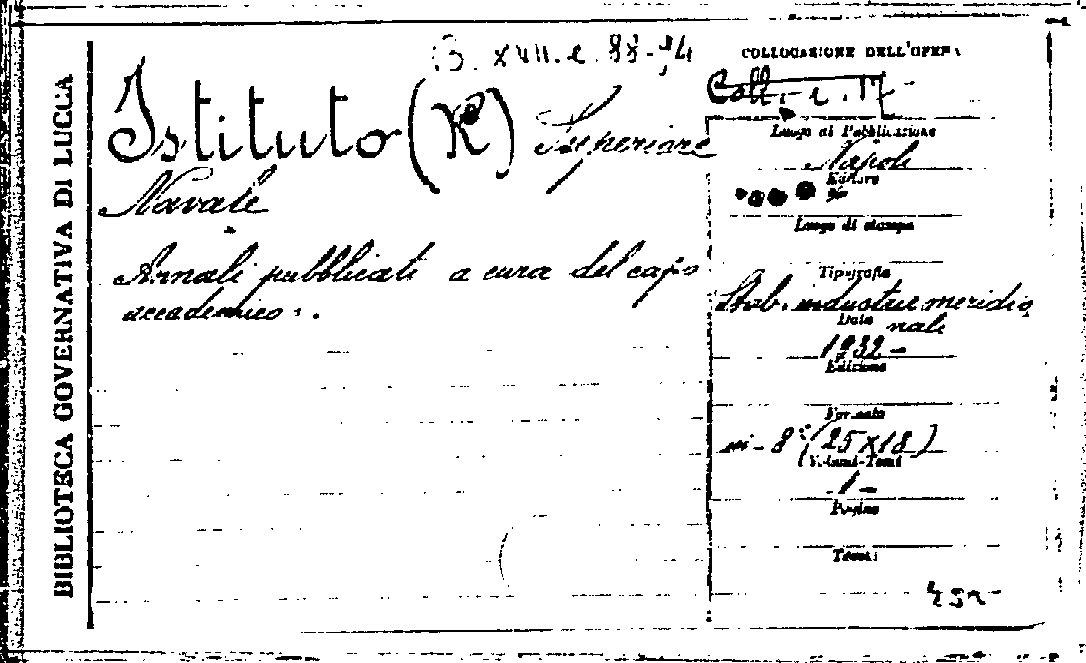 BIBLIOTECA GOVERNATIVA DI LUCCA
B. XVII. e. 88-94
Istituto (R) Superiore
Navale
Annali pubblicati a cura del capo
accademico.
COLLOCAZIONE DELL'OPERA
Coll.
Luogo di Pubblicazione
Napoli
Editore
Luogo di stampa
Tipografia
Stab. industrie meridio
nali
Data
1932 -
Edizione
Formato
in-8° (25x18)
Volumi-Tomi
1 -
Pagine
Tavole